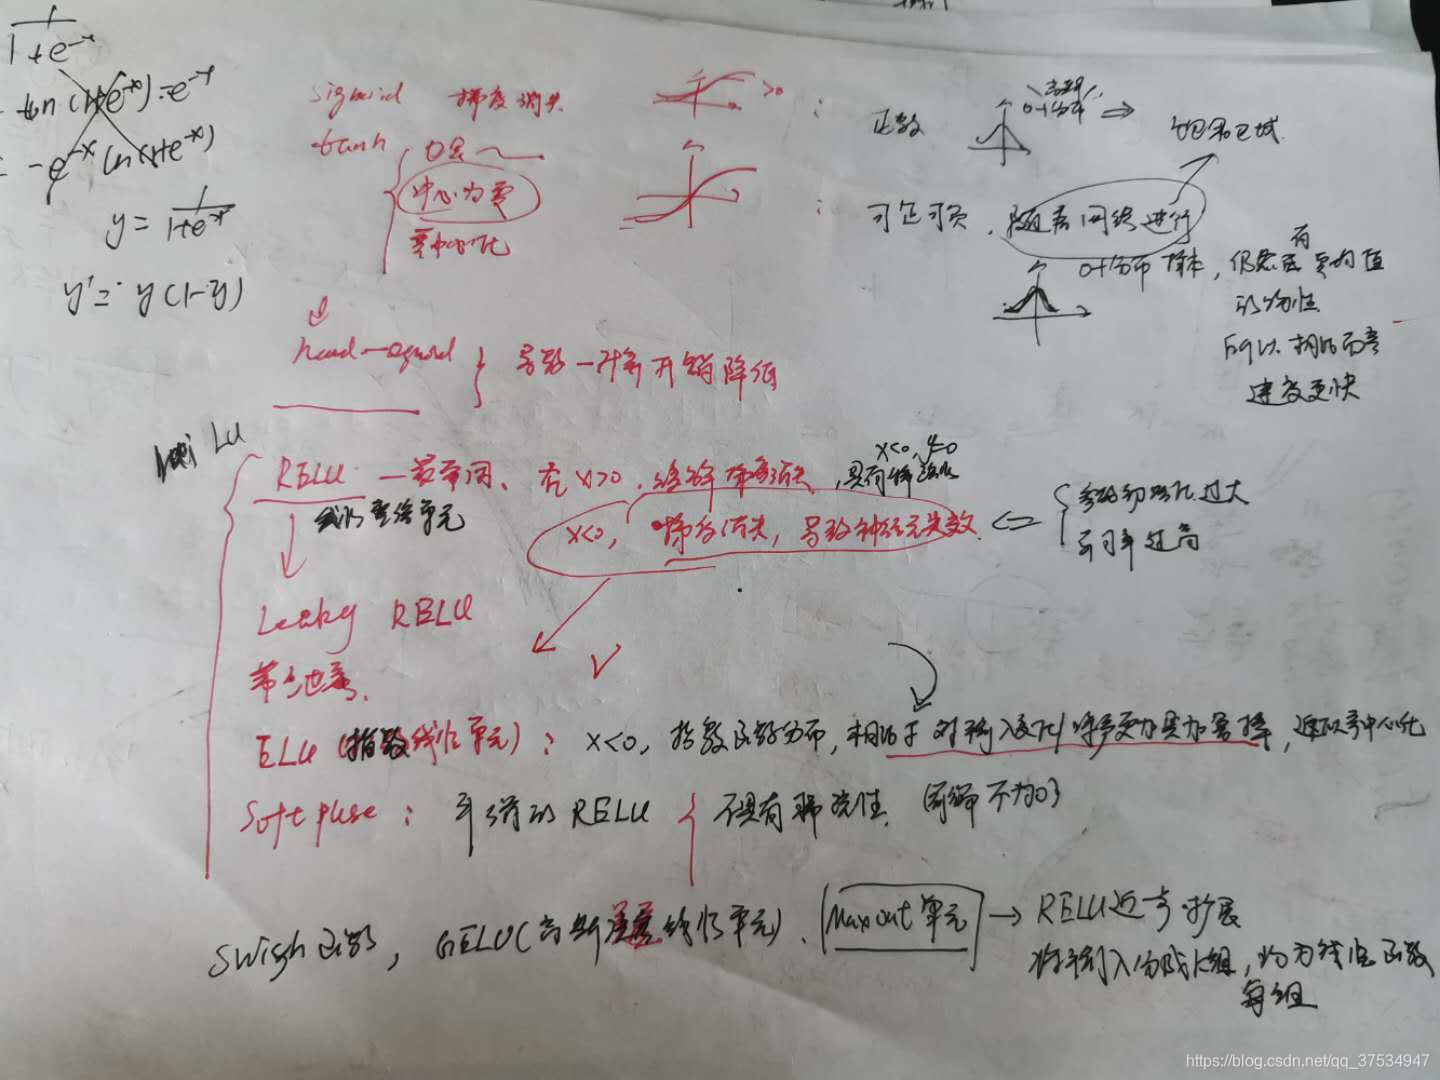 1
1+e^-x
ln(1+e^-x)·e^-x
= -e^-x ln(1+e^-x)
y = 1/(1+e^-x)
y' = y(1-y)
sigmoid 梯度消失
>0
: 正数
高斯
0-1分布 ⇒ 饱和区域
tanh
中心为零
零中心化
: 可正可负，随着网络进行
0-1分布 样本，仍然 有 零均值
的特性
所以相比而言
速度更快
hard-sigmoid } 导数-计算开销降低
RELU —最常用、在x>0，缓解梯度消失，具有稀疏性
x<0, y=0
线性整流单元
x<0, 梯度消失，导致神经元失效 ⇐ { 参数初始化过大
学习率过高
Leaky RELU
带泄露
ELU (指数线性单元)： x<0，指数函数分布，相比于 对输入变化/噪声更加具加鲁棒，近似零中心化
Softpluse： 平滑的RELU { 不具有稀疏性 (导数不为0)
Swish函数，GELU(高斯误差线性单元)、Maxout单元 → RELU进一步扩展
将输入分成k组，均为线性函数
每组
https://blog.csdn.net/qq_37534947